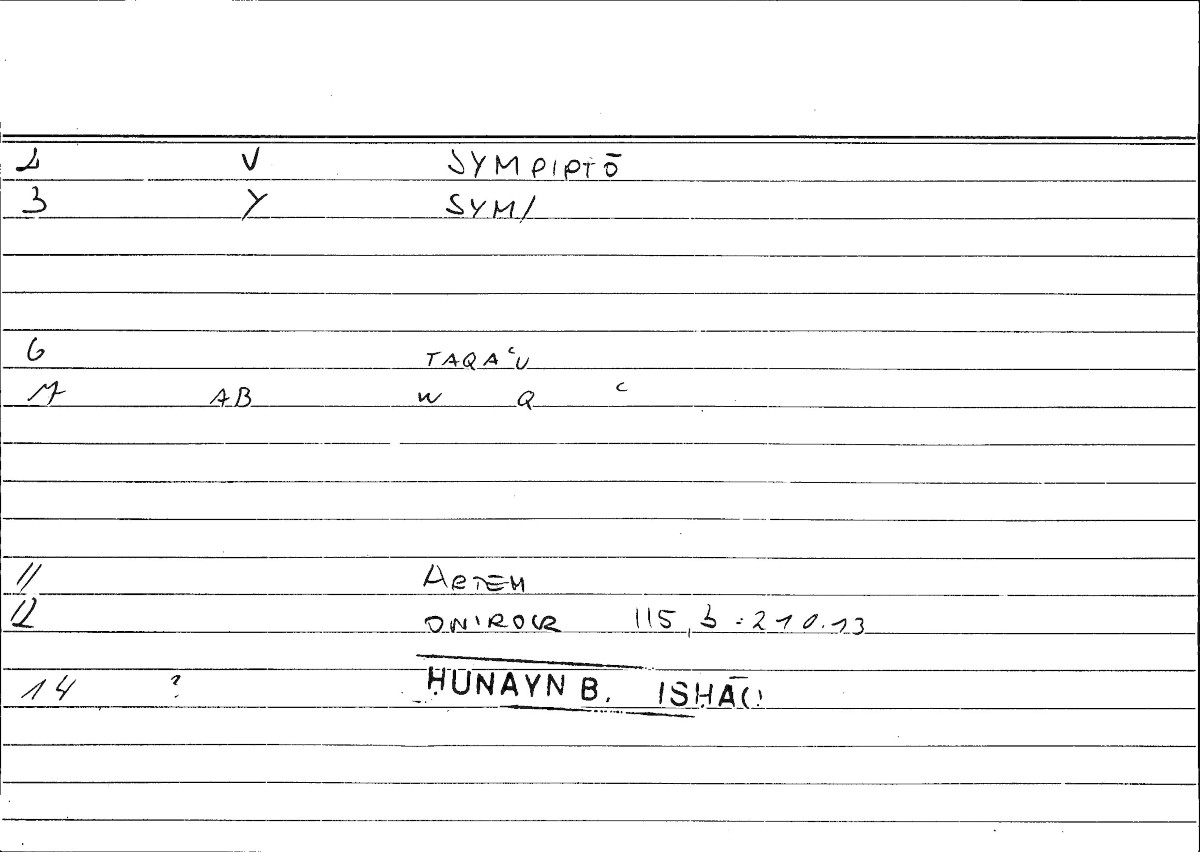 2 V SYMPIPTŌ
3 Y SYM/
6 TAQAʿU
7 AB W Q ʿ
11 ARTEM
12 ONIROCR 115,3 = 210.13
14 ? ḤUNAYN B. ISḤĀQ